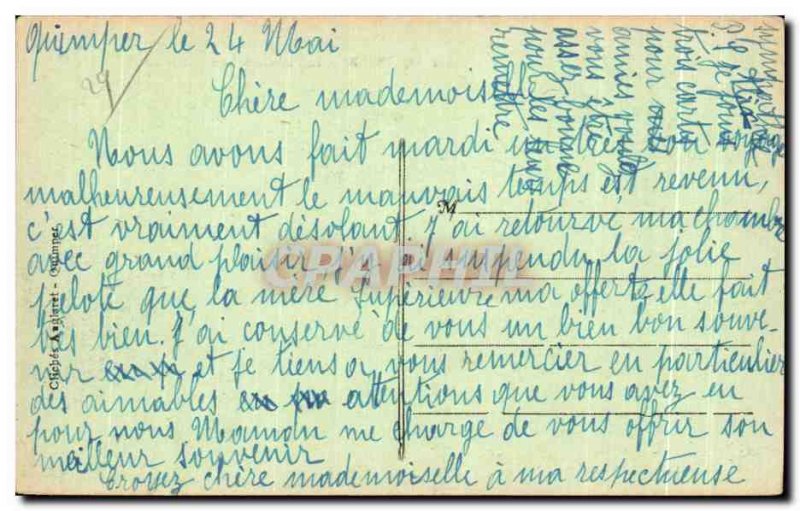 Quimper le 24 Mai
29
Chère mademoiselle
Nous avons fait mardi un très bon voyage
malheureusement le mauvais temps est revenu,
c'est vraiment désolant J'ai retouvé ma chambre
avec grand plaisir j'ai suspendu la jolie
pelote que la mère Supérieure ma offerte elle fait
très bien. J'ai conservé de vous un bien bon souve-
nir et je tiens a vous remercier en particulier
des aimables attentions que vous avez eu
pour nous Maman me charge de vous offrir son
meilleur souvenir
Croyez chère mademoiselle à ma respectueuse
sympathie
trois cartes
pour
amies
vous êtes
assez bonne
pour les leur
remettre
M
Clichés Anglaret - Quimper
CPAPHIL